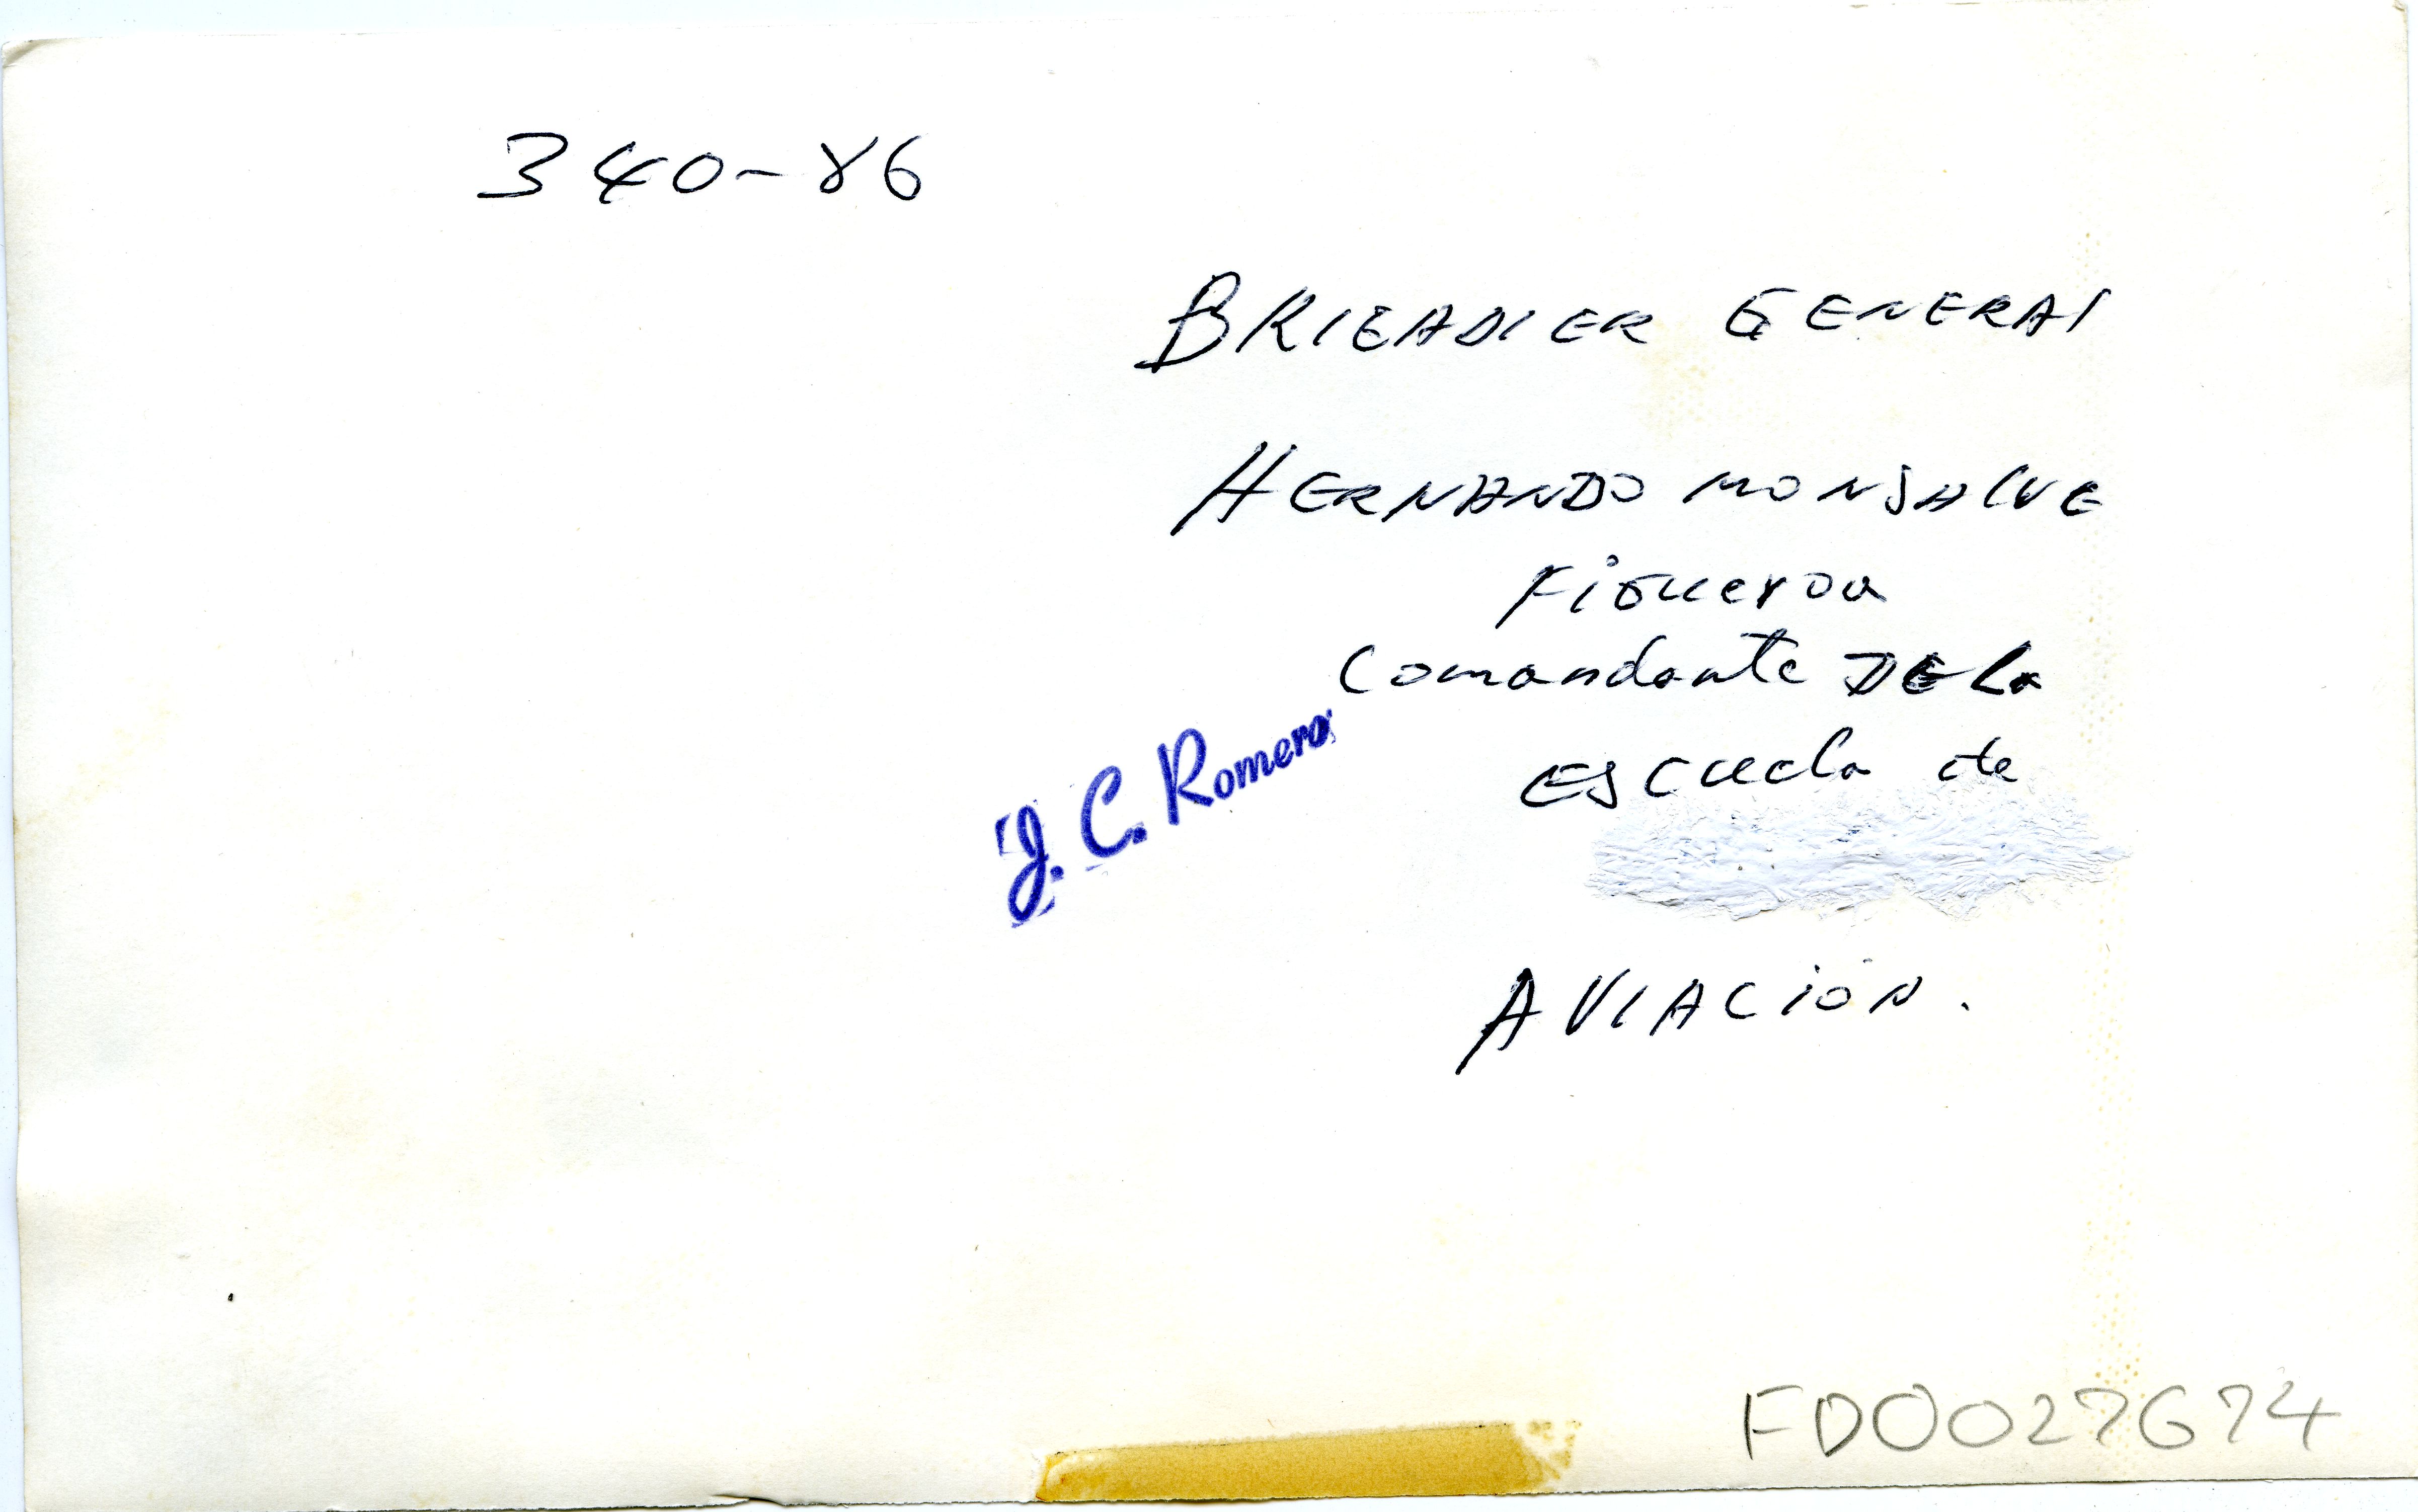 340-86
BRIGADIER GENERAL
HERNANDO MONSALVE
Figueroa
Comandante DE la
Escuela de
AVIACIÓN.
J. C. Romero
FD0027674